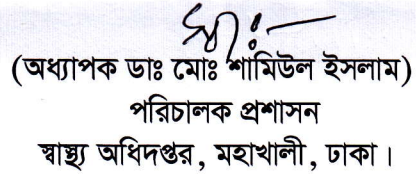 স্বাঃ-
(অধ্যাপক ডাঃ মোঃ শামিউল ইসলাম)
পরিচালক প্রশাসন
স্বাস্থ্য অধিদপ্তর, মহাখালী, ঢাকা।